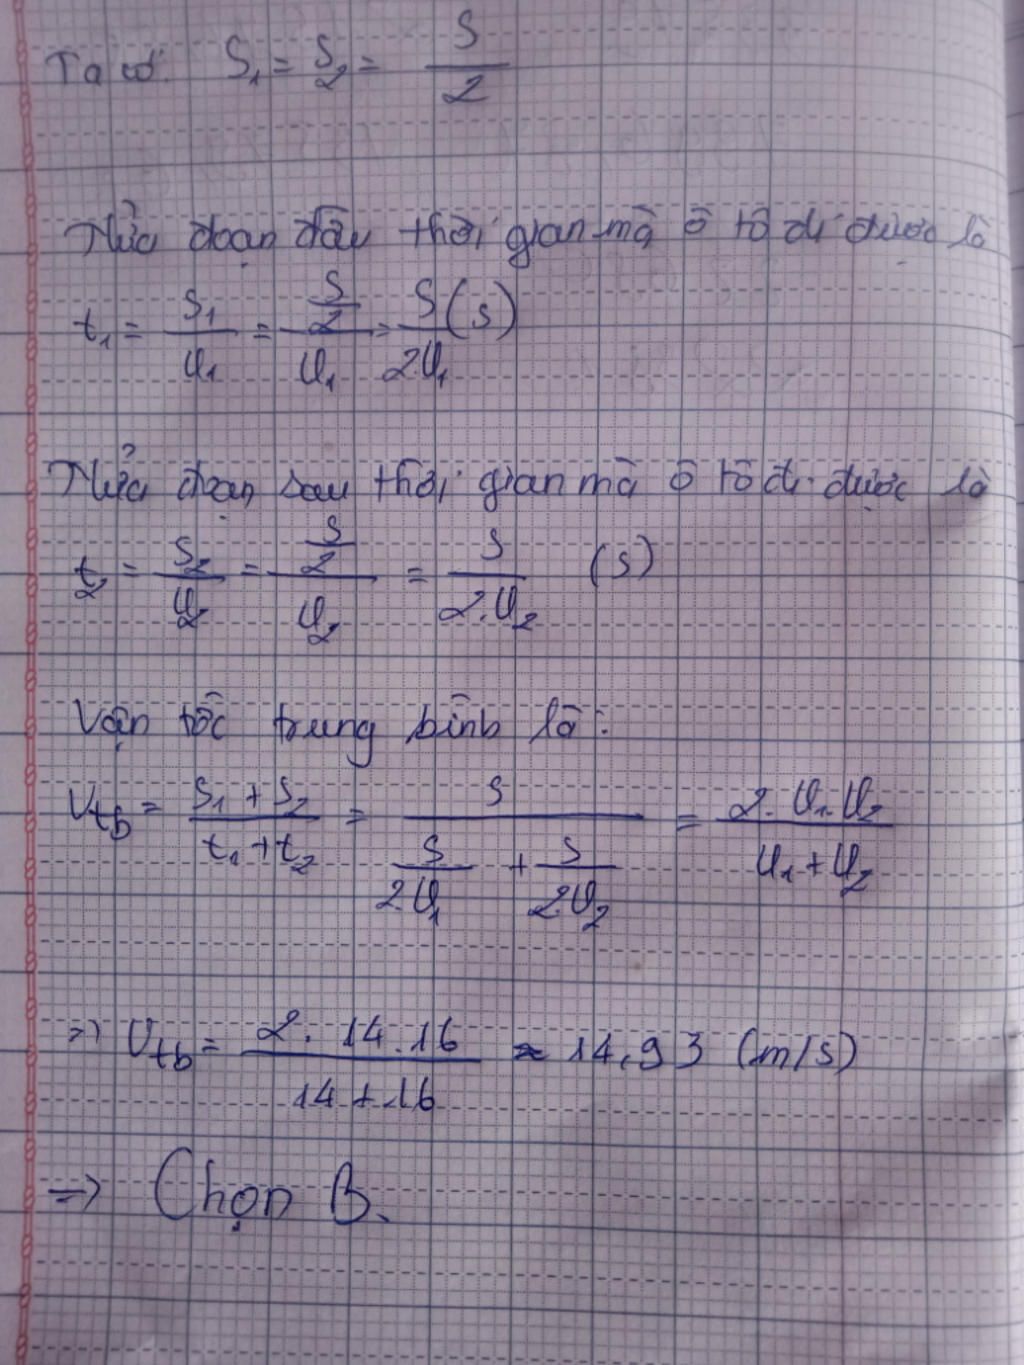 Ta có: S₁ = S₂ = S/2
Nửa đoạn đầu thời gian mà ô tô đi được là
t₁ = S₁/v₁ = (S/2)/v₁ = S/2v₁ (s)
Nửa đoạn sau thời gian mà ô tô đi được là
t₂ = S₂/v₂ = (S/2)/v₂ = S/2.v₂ (s)
Vận tốc trung bình là:
Vtb = (S₁ + S₂)/(t₁ + t₂) = S/(S/2v₁ + S/2v₂) = 2.v₁.v₂/(v₁ + v₂)
=> Vtb = 2.14.16/(14 + 16) ≈ 14,93 (m/s)
=> Chọn B.